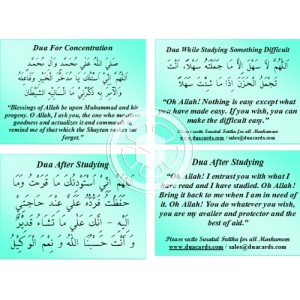 Dua For Concentration
صَلَّى اللهُ عَلَى مُحَمَّدٍ وَآلِ مُحَمَّدٍ
اَللَّهُمَّ اِنِّي اَسْئَلُكَ يَا مُذَكِّرَ الْخَيْرِ وَفَاعِلَهُ
وَالْآمِرَ بِهِ ذَكِّرْنِي مَا اَنْسَانِيهِ الشَّيْطَانُ
"Blessings of Allah be upon Muhammad and his
progeny. O Allah, I ask you, the one who mentions
goodness and actualizes it and commands it,
remind me of that which the Shaytan makes me
forget."
Dua While Studying Something Difficult
اَللَّهُمَّ لَا سَهْلَ اِلَّا مَا جَعَلْتَهُ سَهْلًا، اَنْتَ
تَجْعَلُ الْحَزَنَ اِذَا مَا شِئْتَ سَهْلًا
"Oh Allah! Nothing is easy except what
you have made easy. If you wish, you can
make the difficult easy."
Please recite Suratul Fatiha for all Marhumeen
www.duacards.com / sales@duacards.com
Dua After Studying
اَللَّهُمَّ اِنِّي اَسْتَوْدِعُكَ مَا قَرَأْتُ وَمَا
حَفِظْتُ فَرُدَّهُ عَلَيَّ عِنْدَ حَاجَتِي
اِلَيْهِ - اِنَّكَ عَلَى مَا تَشَاءُ قَدِيرٌ
وَ اَنْتَ حَسْبُنَا اللهُ وَ نِعْمَ الْوَكِيلُ
Dua After Studying
"Oh Allah! I entrust you with what I
have read and I have studied. Oh Allah!
Bring it back to me when I am in need of
it. Oh Allah! You do whatever you wish,
you are my availer and protector and the
best of aid."
Please recite Suratul Fatiha for all Marhumeen
www.duacards.com / sales@duacards.com